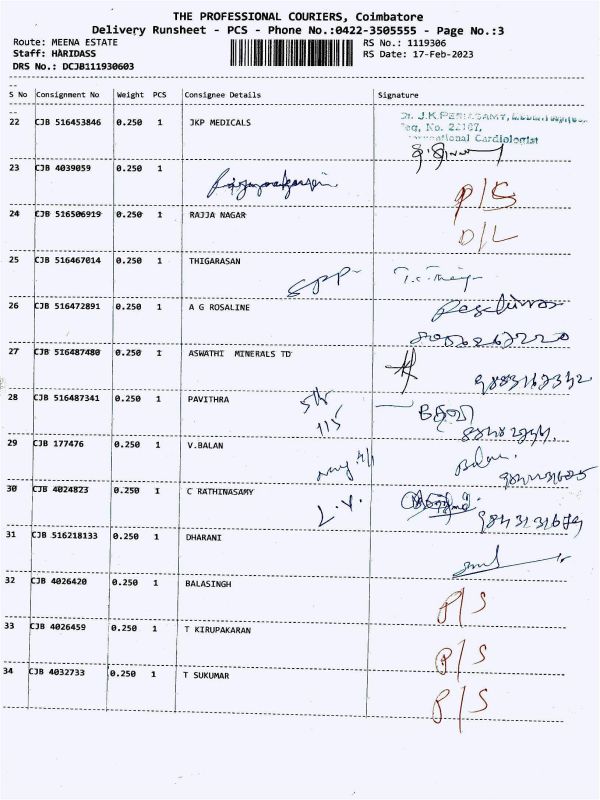 THE PROFESSIONAL COURIERS, Coimbatore
Delivery Runsheet - PCS - Phone No.:0422-3505555 - Page No.:3
Route: MEENA ESTATE RS No.: 1119306
Staff: HARIDASS RS Date: 17-Feb-2023
DRS No.: DCJB111930603
S No Consignment No Weight PCS Consignee Details Signature
22 CJB 516453846 0.250 1 JKP MEDICALS
Dr. J.K.PERIASAMY,
Reg. No. 22107,
Cardiologist
23 CJB 4039059 0.250 1
P/S
24 CJB 516506919 0.250 1 RAJJA NAGAR
D/L
25 CJB 516467014 0.250 1 THIGARASAN
26 CJB 516472891 0.250 1 A G ROSALINE
27 CJB 516487480 0.250 1 ASWATHI MINERALS TD
28 CJB 516487341 1 PAVITHRA
115
29 CJB 177476 0.250 1 V.BALAN
Balan
30 CJB 4024823 0.250 1 C RATHINASAMY
L.V.
31 CJB 516218133 0.250 1 DHARANI
32 CJB 4026420 0.250 1 BALASINGH
P/S
33 CJB 4026459 0.250 1 T KIRUPAKARAN
P/S
34 CJB 4032733 0.250 1 T SUKUMAR
P/S